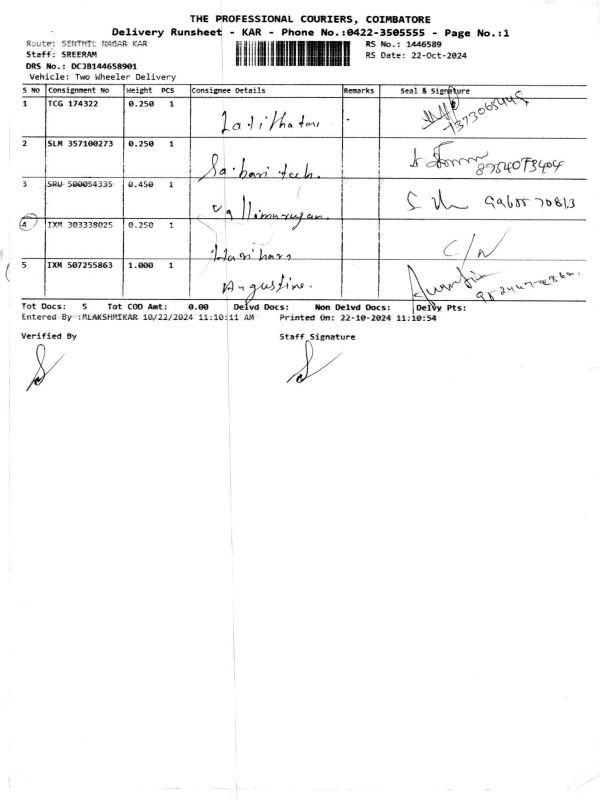 THE PROFESSIONAL COURIERS, COIMBATORE
Delivery Runsheet - KAR - Phone No.:0422-3505555 - Page No.:1
Route: SENTHIL NAGAR KAR RS No.: 1446589
Staff: SREERAM RS Date: 22-Oct-2024
DRS No.: DCJB144658901
Vehicle: Two Wheeler Delivery
S No Consignment No Weight PCS Consignee Details Remarks Seal & Signature
1 TCG 174322 0.250 1
2 SLM 357100273 0.250 1
Sabari tech.
3 SRU 500054335 0.450 1
Vallimurugan.
4 IXM 303338025 0.250 1 C/N
Harihara
5 IXM 507255863 1.000 1
Augustine.
Tot Docs: 5 Tot COD Amt: 0.00 Delvd Docs: Non Delvd Docs: Delvy Pts:
Entered By :MLAKSHMIKAR 10/22/2024 11:10:11 AM Printed On: 22-10-2024 11:10:54
Verified By Staff Signature